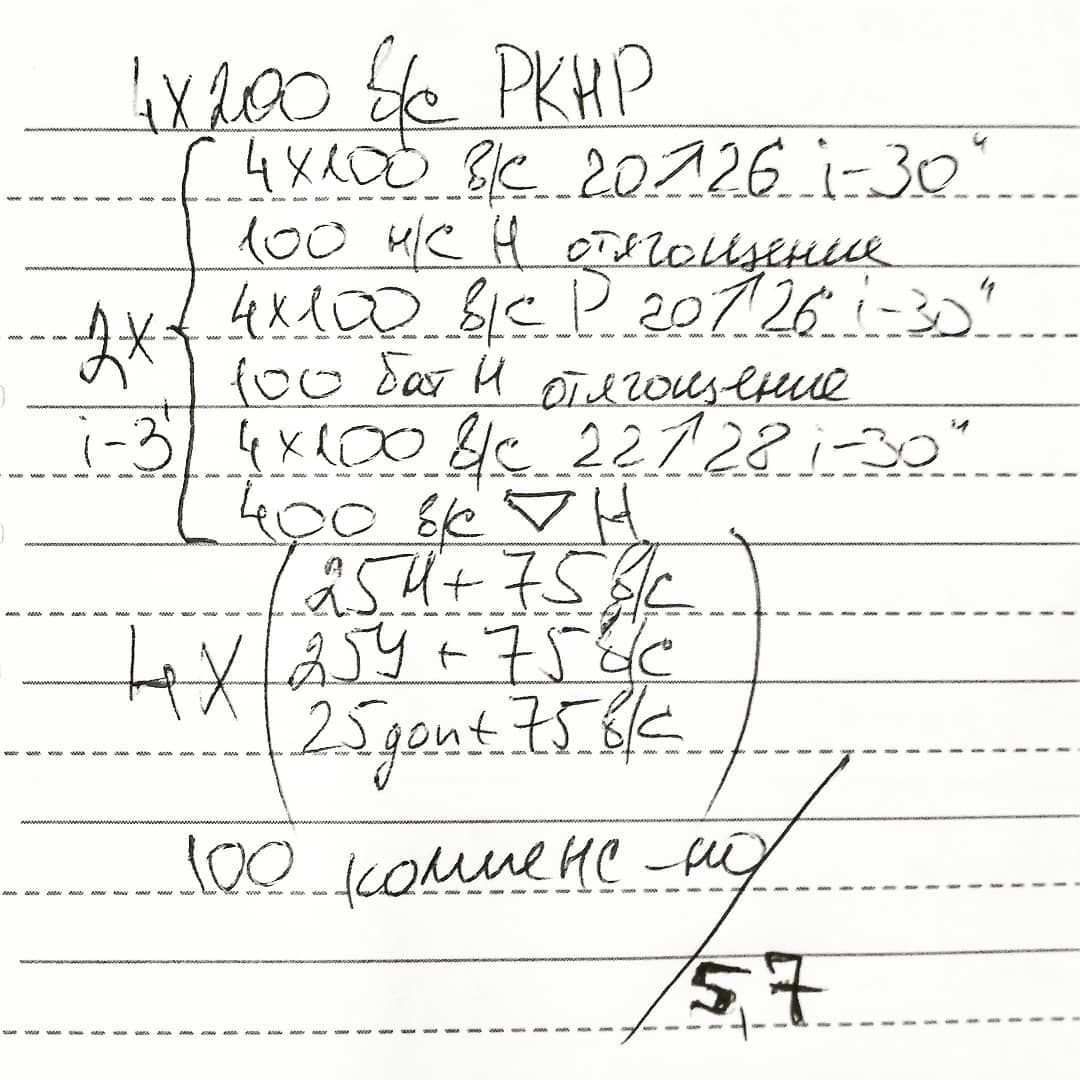 4х200 в/с РКНР
4х100 в/с 20↗26 i-30"
100 н/с Н отягощение
4х100 в/с Р 20↗26 i-30"
2х
100 бат Н отягощение
i-3'
4х100 в/с 22↗28 i-30"
400 в/с ▽ Н
25Н + 75 в/с
4х
25У + 75 в/с
25доп + 75 в/с
100 компенс-но
5,7